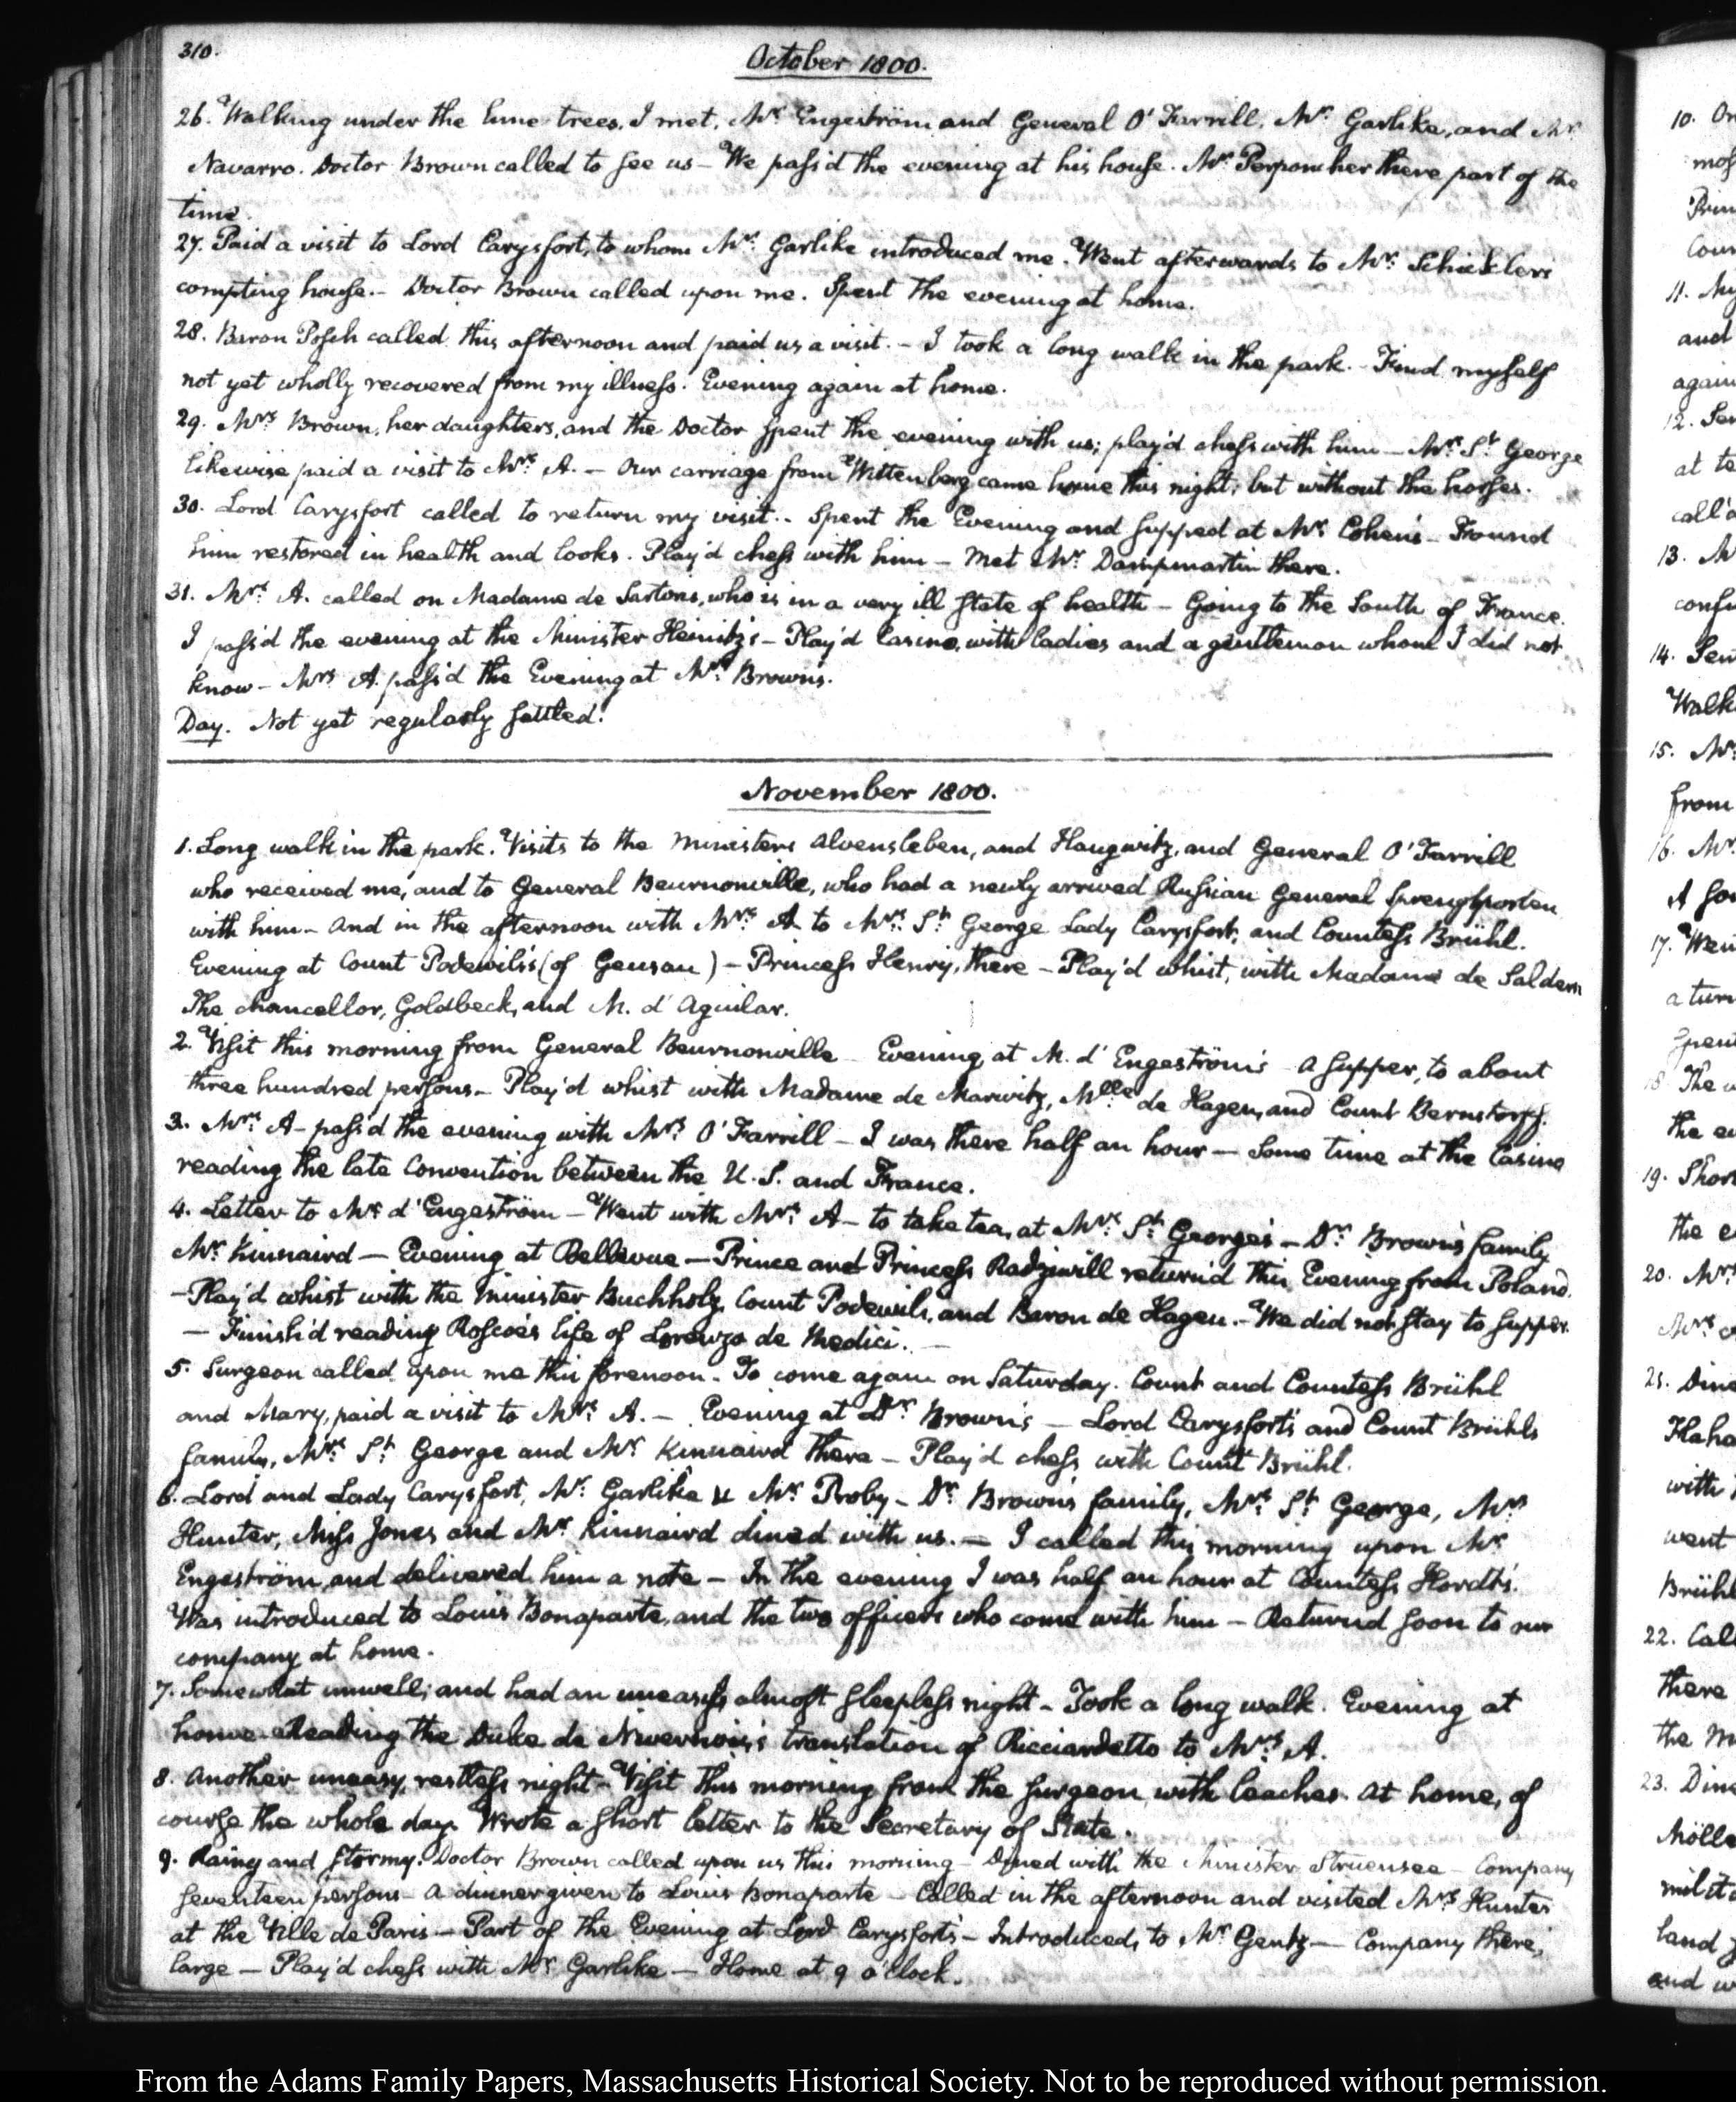 310.
October 1800.
26. Walking under the lime trees, I met, Mr. Engeström and General O'Farrill, Mr. Garlike, and Mr.
Navarro. Doctor Brown called to see us — We pass'd the evening at his house. Mr. Perponcher there part of the
time.
27. Paid a visit to Lord Carysfort, to whom Mr. Garlike introduced me. Went afterwards to Mr. Schicklers
compting house. — Doctor Brown called upon me. Spent the evening at home.
28. Baron Posch called this afternoon and paid us a visit. — I took a long walk in the park. — Find myself
not yet wholly recovered from my illness. Evening again at home.
29. Mrs. Brown, her daughters, and the Doctor spent the evening with us; play'd chess with him — Mrs. St. George
likewise paid a visit to Mrs. A. — Our carriage from Wittenberg came home this night; but without the horses.
30. Lord Carysfort called to return my visit. — Spent the Evening and supped at Mr. Cohen's — Found
him restored in health and looks. Play'd chess with him — Met Mr. Dampmartin there.
31. Mrs. A. called on Madame de Sartoris, who is in a very ill state of health — Going to the South of France.
I pass'd the evening at the Minister Heinitz's — Play'd Casino, with ladies and a gentleman whom I did not
know — Mrs. A. pass'd the Evening at Mrs. Brown's.
Day. Not yet regularly settled.
November 1800.
1. Long walk in the park. Visits to the Ministers Alvensleben, and Haugwitz, and General O'Farrill
who received me, and to General Beurnonville, who had a newly arrived Russian General Sprengporten
with him — And in the afternoon with Mrs. A. to Mrs. St. George Lady Carysfort, and Countess Brühl.
Evening at Count Podewils's (of Gensau) — Princess Henry, there — Play'd whist, with Madame de Saldern
The Chancellor, Goldbeck, and M. d'Aguilar.
2. Visit this morning from General Beurnonville — Evening, at M. d'Engeström's — a supper, to about
three hundred persons — Play'd whist with Madame de Marwitz, Mlle. de Hagen, and Count Bernstorff.
3. Mrs. A — pass'd the evening with Mrs. O'Farrill — I was there half an hour — Some time at the Casino
reading the late Convention between the U.S. and France.
4. Letter to Mr. d'Engeström — Went with Mrs. A — to take tea, at Mrs. St. George's — Dr. Brown's family
Mr. Kinnaird — Evening at Bellevue — Prince and Princess Radziwill return'd this Evening from Poland.
— Play'd whist with the Minister Buchholz, Count Podewils, and Baron de Hagen. — We did not stay to supper.
— Finish'd reading Roscoe's life of Lorenzo de Medici. —
5. Surgeon called upon me this forenoon — To come again on Saturday. Count and Countess Brühl
and Mary, paid a visit to Mrs. A. — Evening at Dr. Brown's — Lord Carysfort's and Count Brühls
family, Mrs. St. George and Mr. Kinnaird there — Play'd chess with Count Brühl.
6. Lord and Lady Carysfort, Mr. Garlike & Mr. Proby — Dr. Brown's family, Mrs. St. George, Mrs.
Hunter, Miss Jones and Mr. Kinnaird dined with us. — I called this morning upon Mr.
Engeström, and delivered him a note — In the evening I was half an hour at Countess Hordt's.
Was introduced to Louis Bonaparte, and the two officers who come with him — Returned soon to our
company at home.
7. Somewhat unwell; and had an uneasy almost sleepless night — Took a long walk. Evening at
home — Reading the Duke de Nivernois's translation of Ricciardetto to Mrs. A.
8. Another uneasy, restless night — Visit this morning from the surgeon, with leaches. At home, of
course the whole day. Wrote a short letter to the Secretary of State.
9. Rainy and stormy. Doctor Brown called upon us this morning — Dined with the Minister Struensee — Company
seventeen persons — A dinner given to Louis Bonaparte — Called in the afternoon and visited Mrs. Hunter
at the Ville de Paris — Part of the Evening at Lord Carysfort's — Introduced, to Mr. Gentz — Company there,
large — Play'd chess with Mr. Garlike — Home at 9 o'clock.
10.
11.
and
again
12.
at
13.
14.
15.
from
16.
17.
18. The
the
19.
the
20. Mrs.
21.
with
went
22.
there
the
23.
land
and
From the Adams Family Papers, Massachusetts Historical Society. Not to be reproduced without permission.